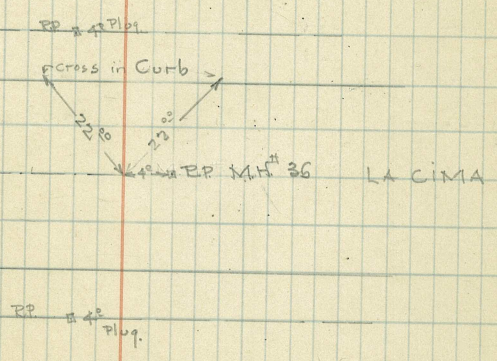 R.P. 4⁰⁰ Plug.
cross in Curb
22⁰⁰ 22⁰⁰
4⁰⁰ R.P. M.H.# 36 LA CIMA
R.P. 4⁰⁰
Plug.